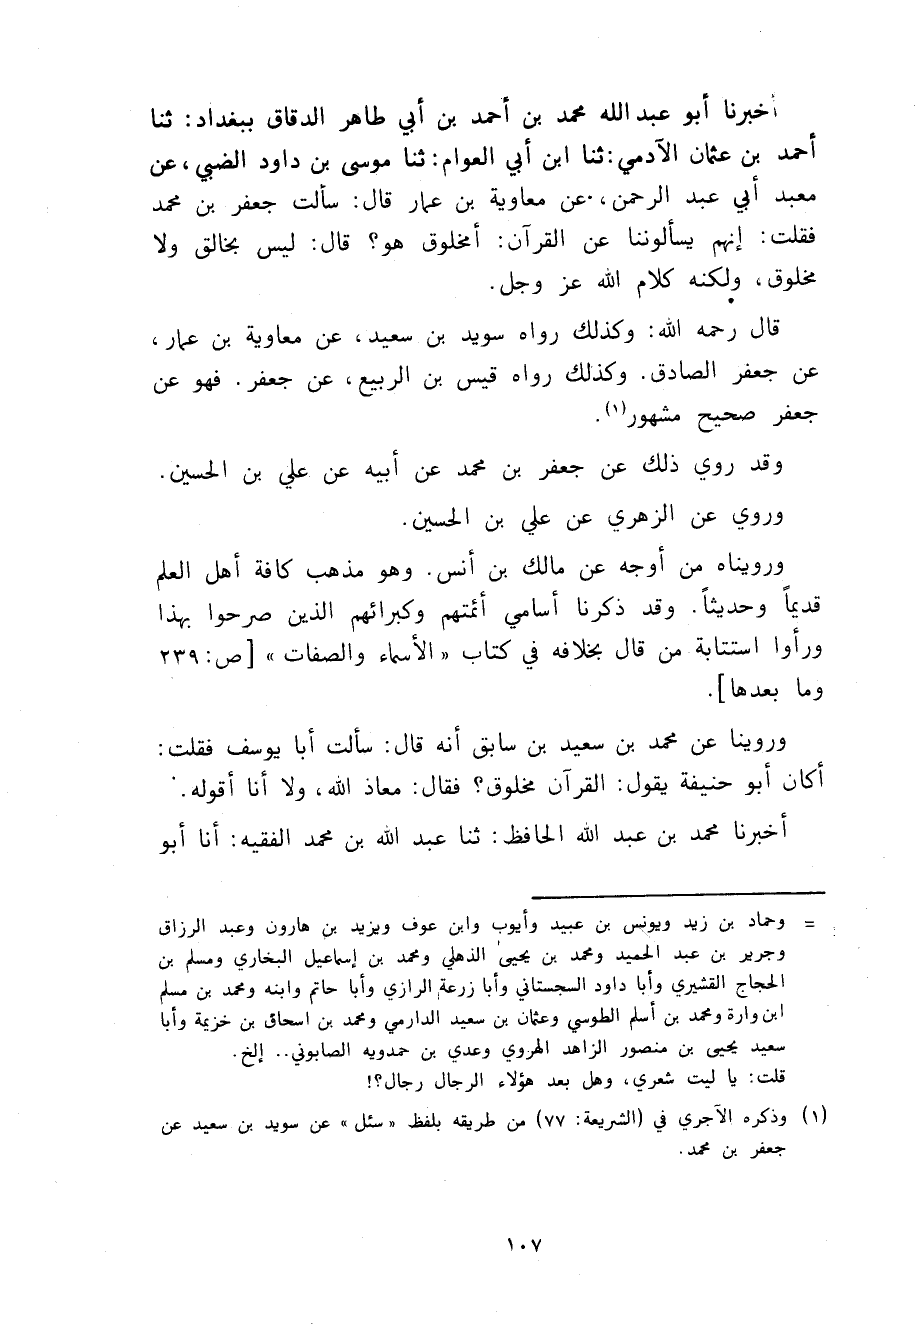 أخبرنا أبو عبد الله محمد بن أحمد بن أبي طاهر الدقاق ببغداد: ثنا
أحمد بن عثمان الآدمي: ثنا ابن أبي العوام: ثنا موسى بن داود الضبي، عن
معبد أبي عبد الرحمن، عن معاوية بن عمار قال: سألت جعفر بن محمد
فقلت: إنهم يسألوننا عن القرآن: أمخلوق هو؟ قال: ليس بخالق ولا
مخلوق، ولكنه كلام الله عز وجل.
قال رحمه الله: وكذلك رواه سويد بن سعيد، عن معاوية بن عمار،
عن جعفر الصادق. وكذلك رواه قيس بن الربيع، عن جعفر. فهو عن
جعفر صحيح مشهور(١).
وقد روي ذلك عن جعفر بن محمد عن أبيه عن علي بن الحسين.
وروي عن الزهري عن علي بن الحسين.
ورويناه من أوجه عن مالك بن أنس. وهو مذهب كافة أهل العلم
قديماً وحديثاً. وقد ذكرنا أسامي أئمتهم وكبرائهم الذين صرحوا بهذا
ورأوا استتابة من قال بخلافه في كتاب «الأسماء والصفات» [ص: ٢٣٩
وما بعدها].
وروينا عن محمد بن سعيد بن سابق أنه قال: سألت أبا يوسف فقلت:
أكان أبو حنيفة يقول: القرآن مخلوق؟ فقال: معاذ الله، ولا أنا أقوله.
أخبرنا محمد بن عبد الله الحافظ: ثنا عبد الله بن محمد الفقيه: أنا أبو
= وحماد بن زيد ويونس بن عبيد وأيوب وابن عوف ويزيد بن هارون وعبد الرزاق
وجرير بن عبد الحميد ومحمد بن يحيى الذهلي ومحمد بن إسماعيل البخاري ومسلم بن
الحجاج القشيري وأبا داود السجستاني وأبا زرعة الرازي وأبا حاتم وابنه ومحمد بن مسلم
ابن وارة ومحمد بن أسلم الطوسي وعثمان بن سعيد الدارمي ومحمد بن اسحاق بن خزيمة وأبا
سعيد يحيى بن منصور الزاهد الهروي وعدي بن حمدويه الصابوني.. إلخ.
قلت: يا ليت شعري، وهل بعد هؤلاء الرجال رجال؟!
(١) وذكره الآجري في (الشريعة: ٧٧) من طريقه بلفظ «سئل» عن سويد بن سعيد عن
جعفر بن محمد.
١٠٧